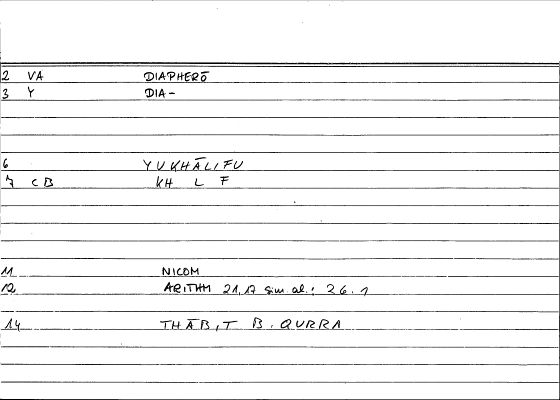 2 VA DIAPHERŌ
3 Y DIA-
6 YUKHĀLIFU
7 CB KH L F
11 NICOM
12 ARITHM 21,17 sim. al.; 26.1
14 THĀB,T B. QURRA